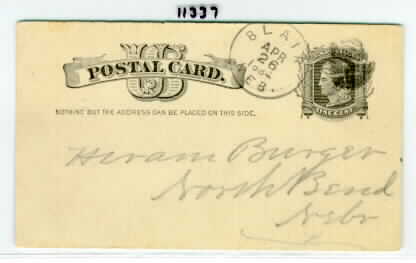 11337
BLAIR
APR
26
NEB.
U S
POSTAL CARD.
NOTHING BUT THE ADDRESS CAN BE PLACED ON THIS SIDE.
ONE CENT
Hiram Burger
North Bend
Nebr